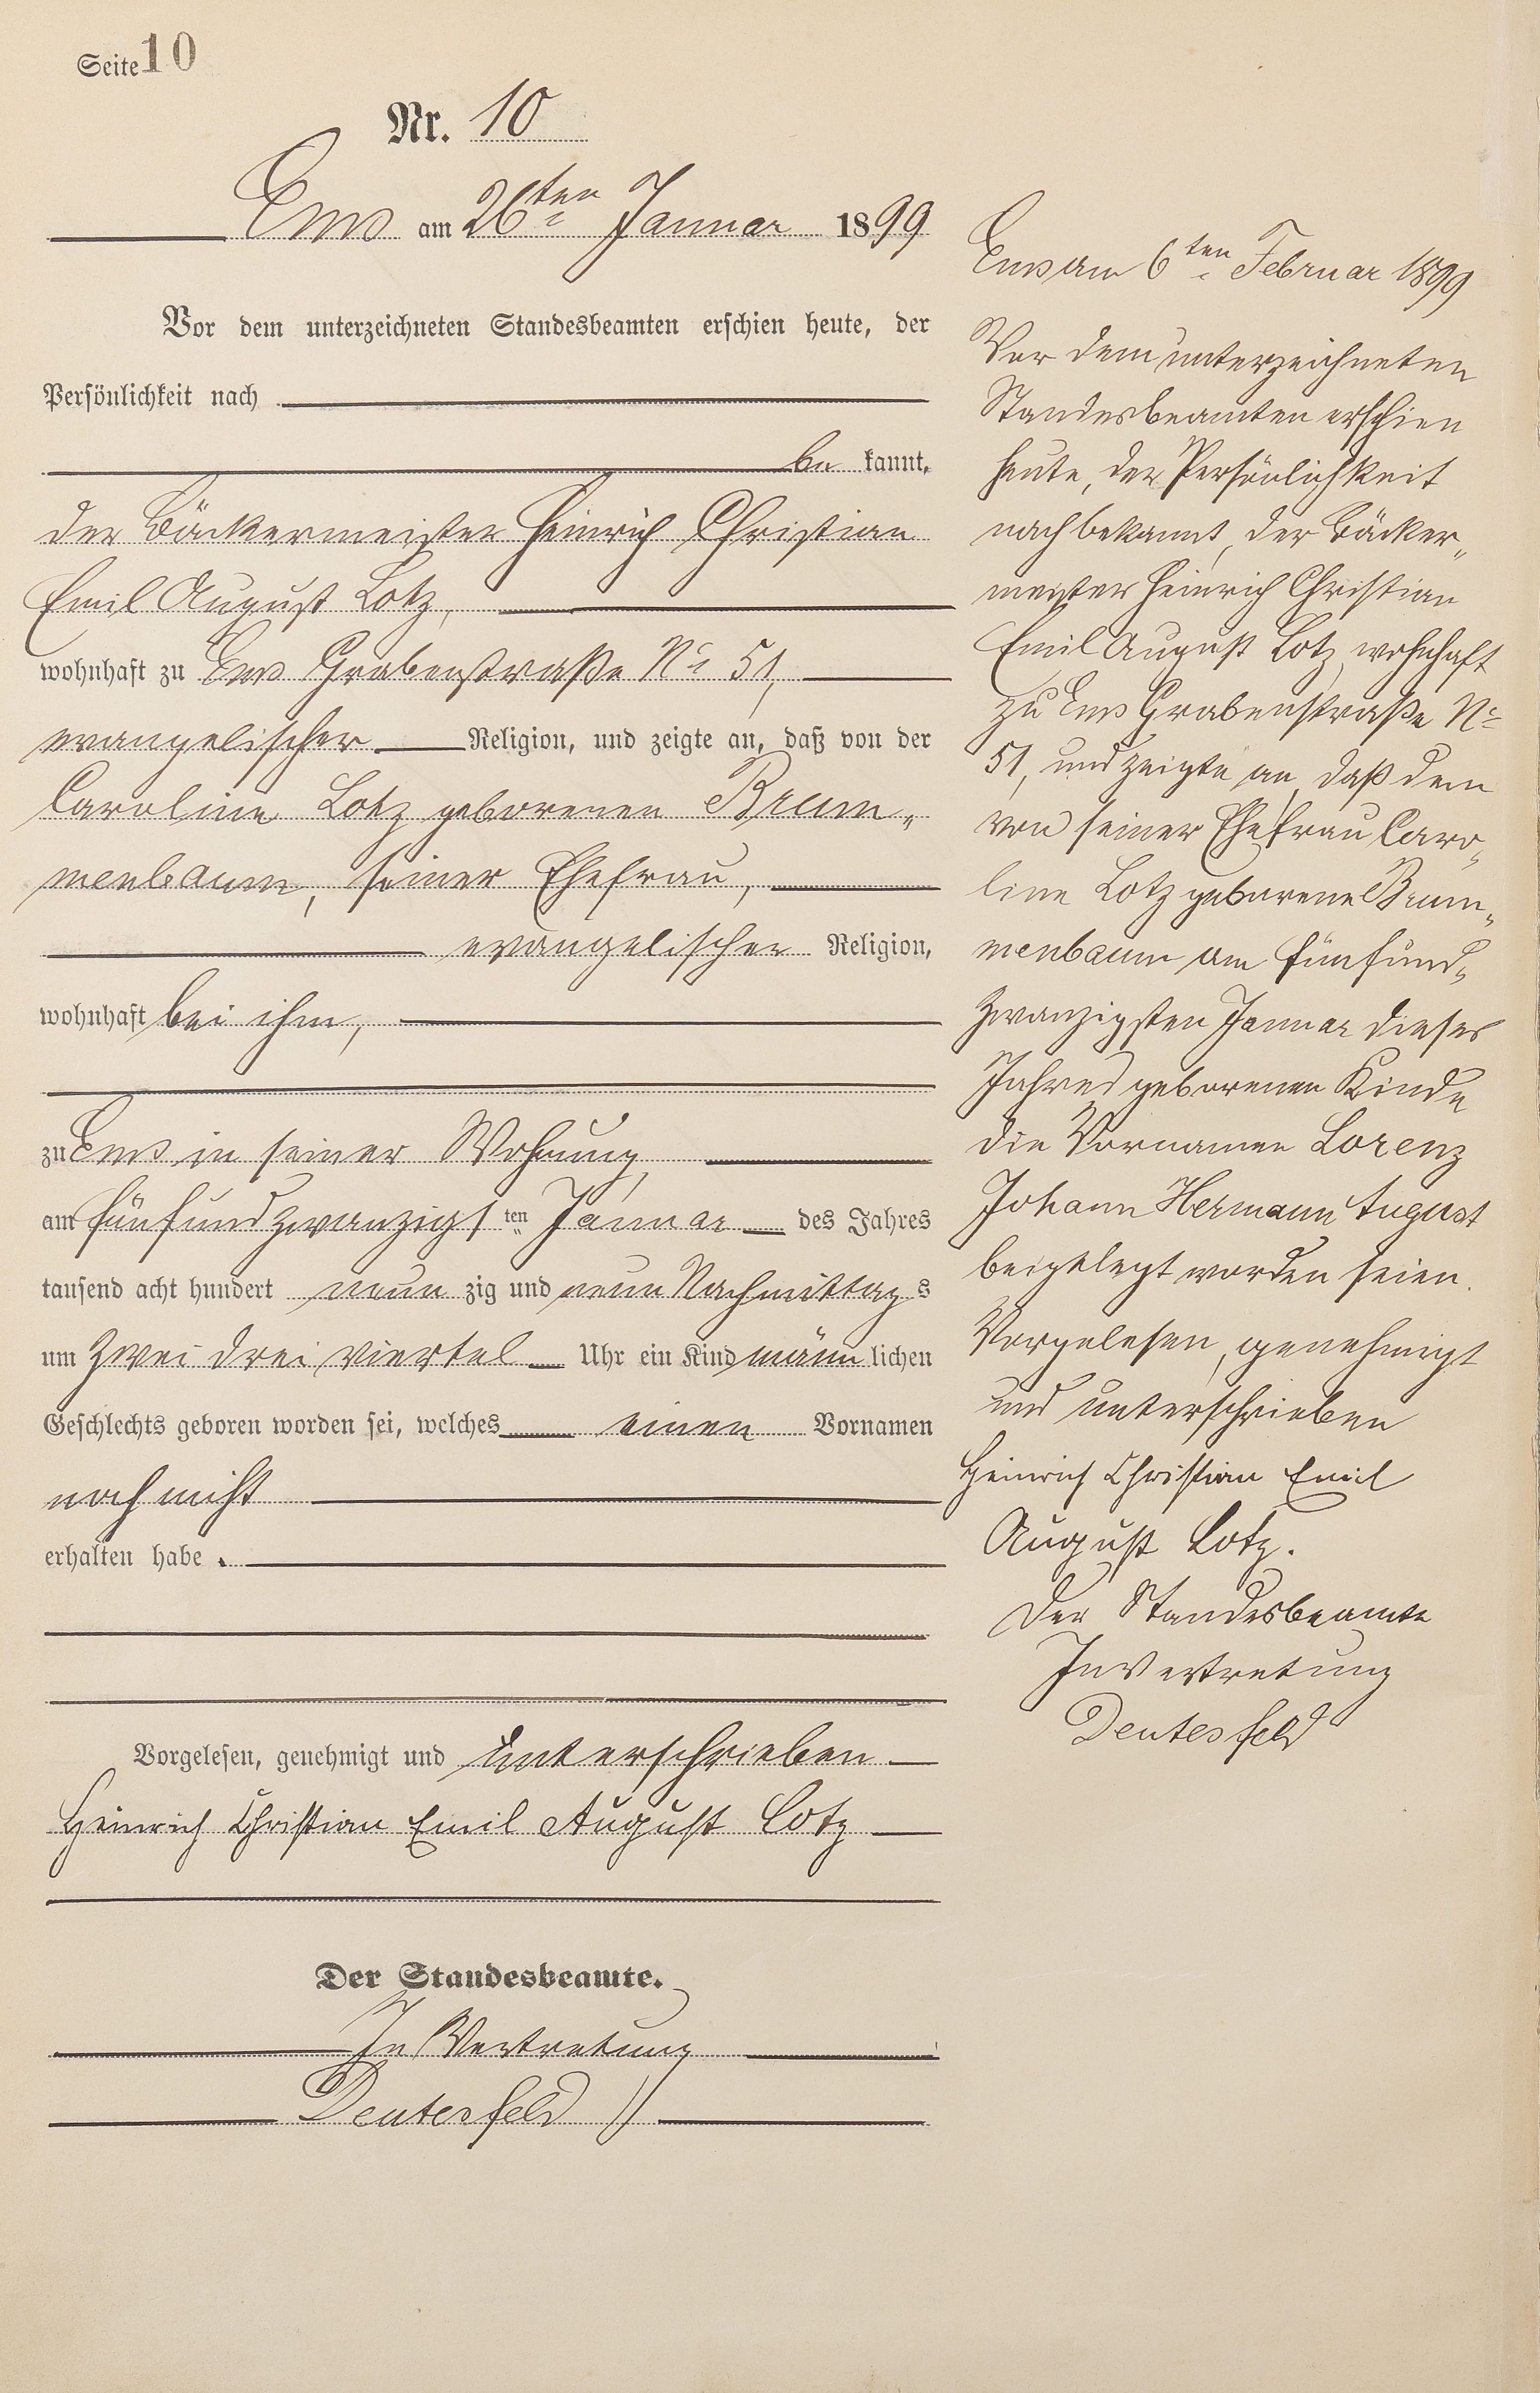 Seite 10
Nr. 10
Ems am 26ten Januar 1899
Vor dem unterzeichneten Standesbeamten erschien heute, der
Persönlichkeit nach
be kannt,
der Bäckermeister Heinrich Christian
Emil August Lotz,
wohnhaft zu Ems Grabenstraße No 51,
evangelischer Religion, und zeigte an, daß von der
Caroline Lotz geborenen Brum„
menbaum, seiner Ehefrau,
evangelischer Religion,
wohnhaft bei ihm,
zu Ems in seiner Wohnung,
am fünfundzwanzigs ten Januar des Jahres
tausend acht hundert neun zig und neun Nachmittags
um zwei drei viertel Uhr ein Kind männlichen
Geschlechts geboren worden sei, welches einen Vornamen
noch nicht
erhalten habe.
Vorgelesen, genehmigt und unterschrieben
Heinrich Christian Emil August Lotz
Der Standesbeamte.
In Vertretung
Deutesfeld
Ems am 6ten Februar 1899
Vor dem unterzeichneten
Standesbeamten erschien
heute, der Persönlichkeit
nach bekannt, der Bäcker„
meister Heinrich Christian
Emil August Lotz, wohnhaft
zu Ems Grabenstraße No
51, und zeigte an, daß dem
von seiner Ehefrau Caro„
line Lotz geborene Brum„
menbaum am fünfund„
zwanzigsten Januar dieses
Jahres geborenen Kinde
die Vornamen Lorenz
Johann Hermann August
beigelegt worden seien.
Vorgelesen, genehmigt
und unterschrieben
Heinrich Christian Emil
August Lotz.
Der Standesbeamte
In Vertretung
Deutesfeld